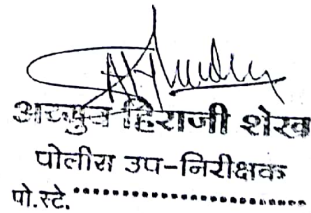 हिराजी शेख
पोलीस उप-निरीक्षक
पो.स्टे.